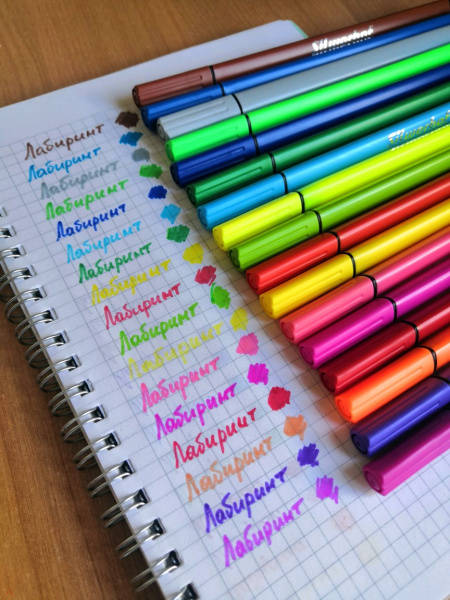 Лабиринт
Лабиринт
Лабиринт
Лабиринт
Лабиринт
Лабиринт
Лабиринт
Лабиринт
Лабиринт
Лабиринт
Лабиринт
Лабиринт
Лабиринт
Лабиринт
Лабиринт
Лабиринт
Лабиринт